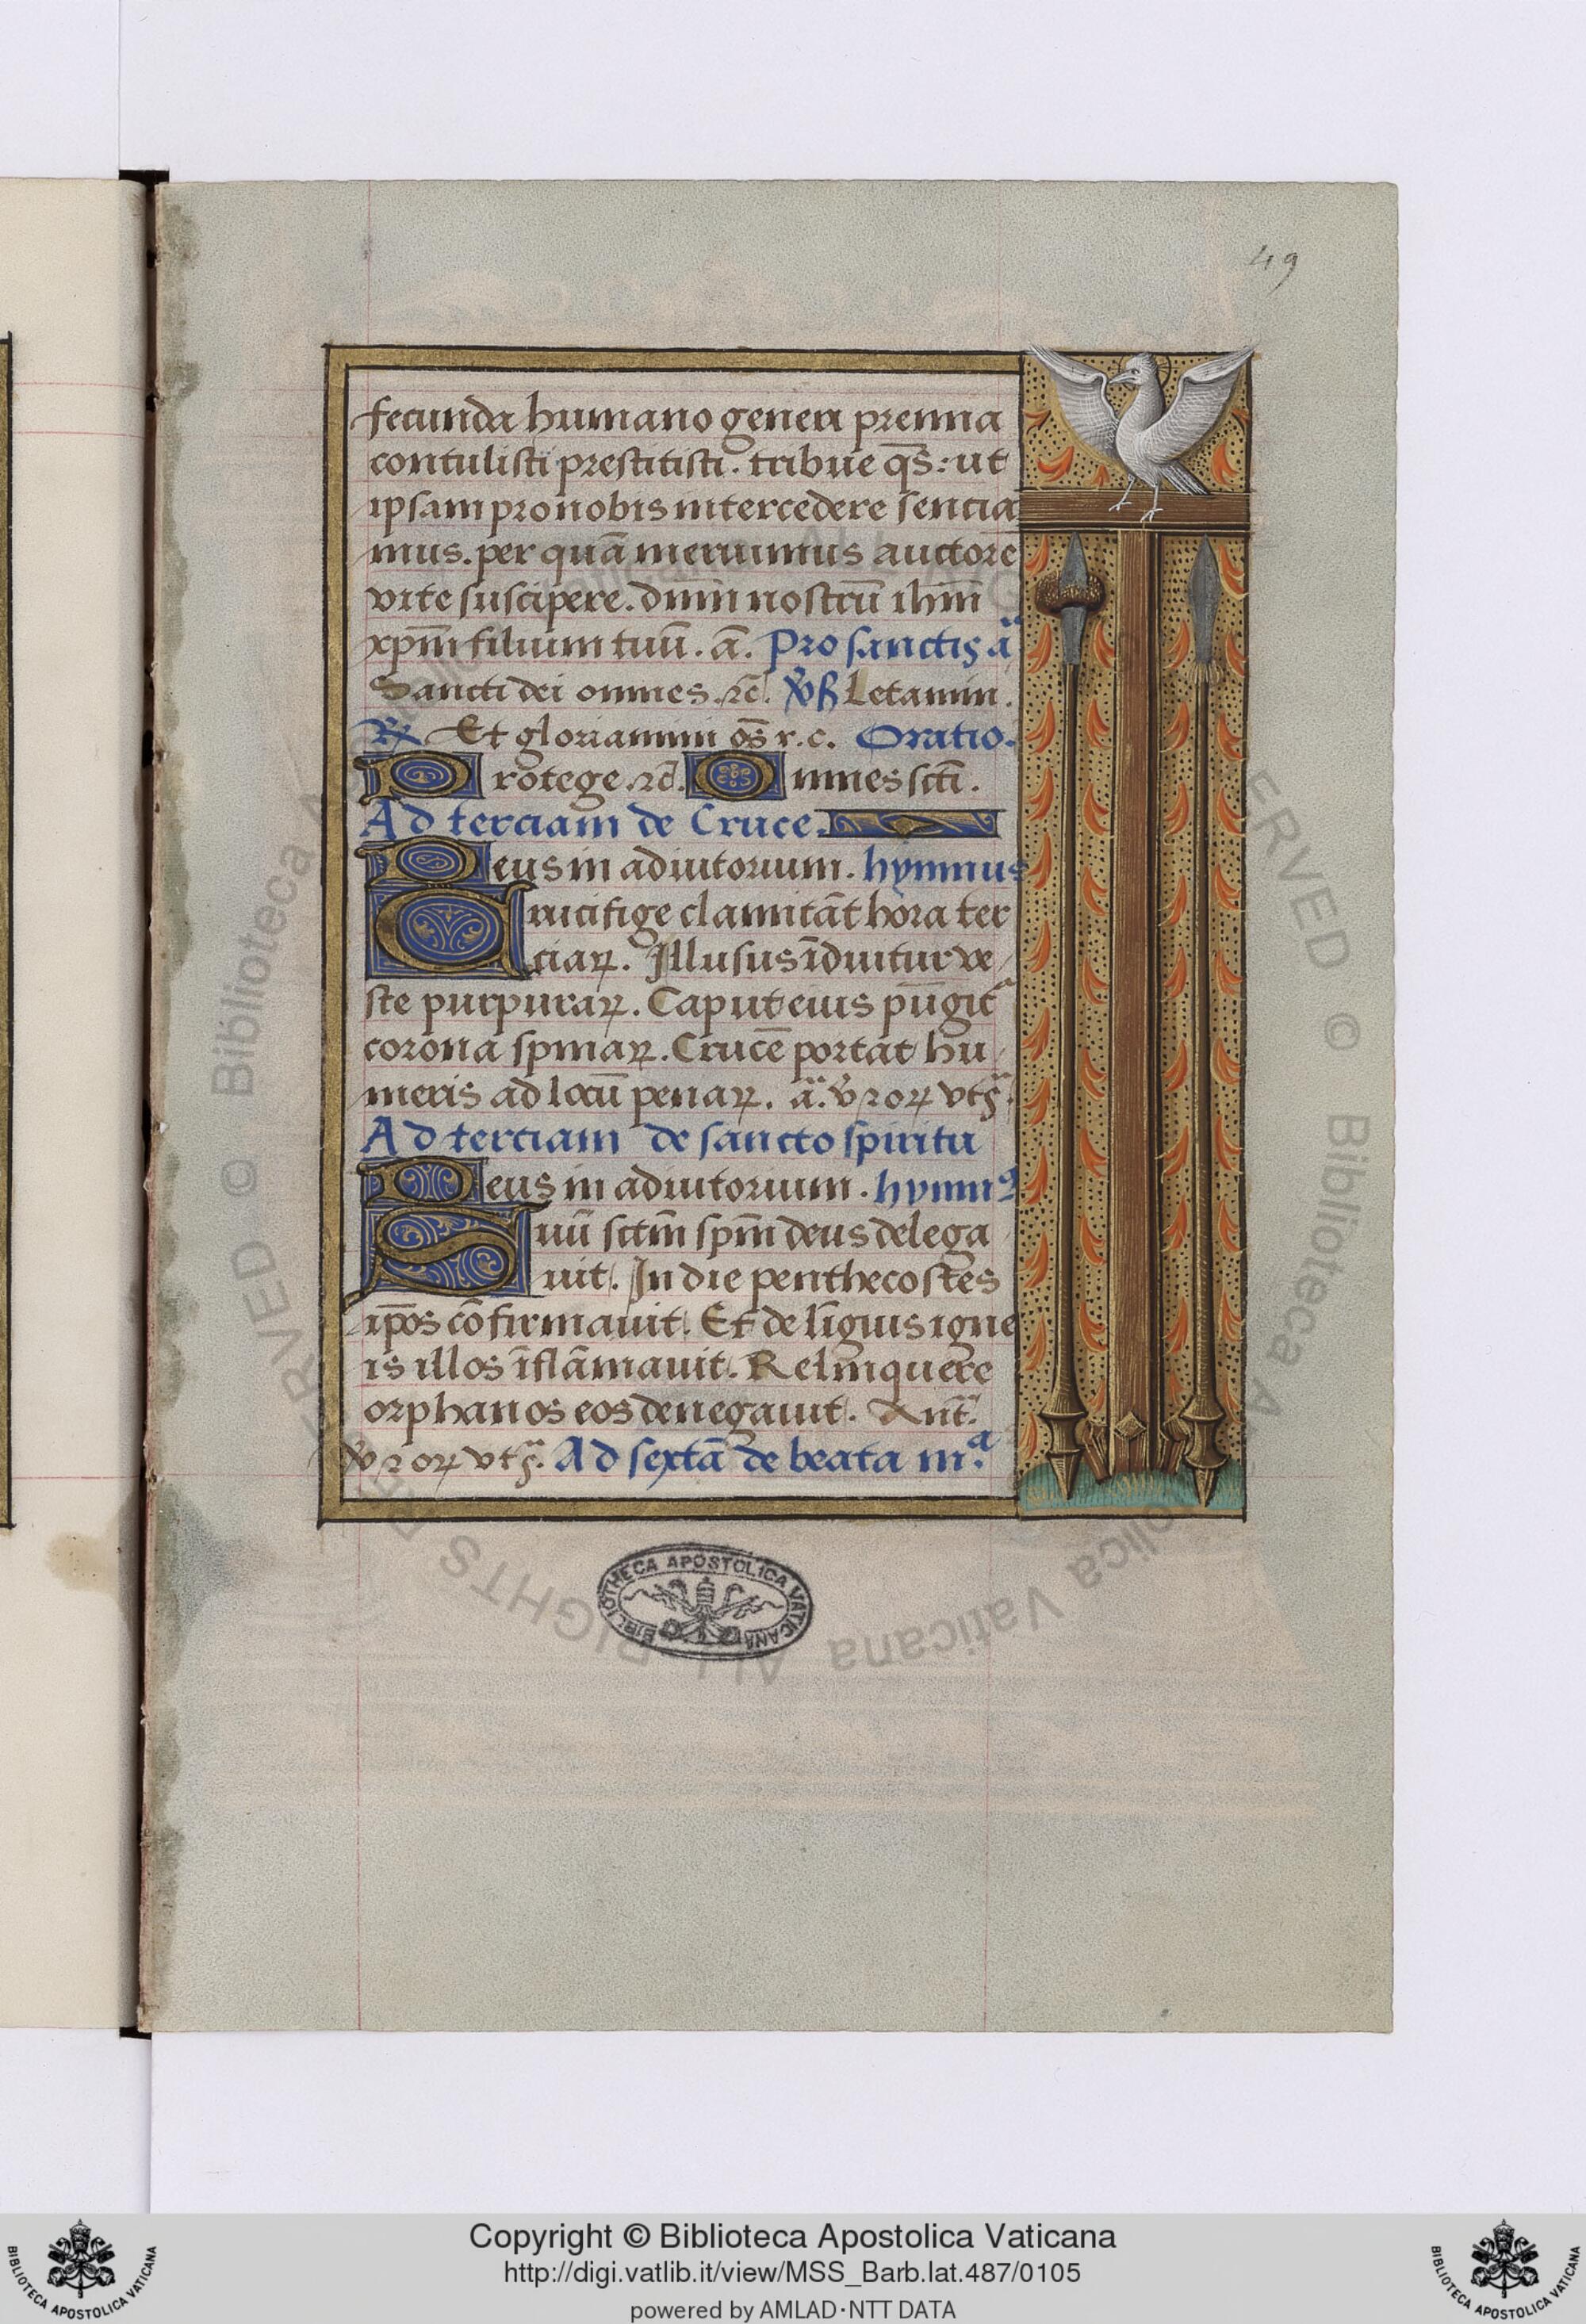 49
fecunda humano generi premia
contulisti prestitisti. tribue qs̄: ut
ipsam pro nobis intercedere sencia
mus. per quā meruimus auctore
vite suscipere. dn̄m nostrū ihm̄
xpm̄ filium tuū. a͞. Pro sanctis a͞
Sancti dei omnes. ⁊c̄. v̾ß Letamin.
℞ Et gloriamini os̄ r.c. Oratio.
Protege. ⁊c̄. Omnes sct̄i.
Ad terciam de Cruce.
Deus in adiutorium. hymnus
Crucifige clamitāt hora ter
ciaꝝ. Illusus īduitur ve
ste purpuraꝝ. Caput eius pūgit
corona spinaꝝ. Crucē portat hu
meris ad locū penaꝝ. a͞. v̾ ⁊ oꝝ vts͞.
Ad terciam de sancto spiritu
Deus in adiutorium. hymnꝰ
Suū sctm̄ spm̄ deus delega
uit. In die penthecostes
ip̄os cōfirmauit. Et de līguis igne
is illos īflāmauit. Relinquere
orphanos eos denegauit. Ant͞.
v̾ ⁊ oꝝ vts͞. Ad sextā de beata m.ª
BIBLIOTHECA APOSTOLICA VATICANA
Copyright © Biblioteca Apostolica Vaticana
http://digi.vatlib.it/view/MSS_Barb.lat.487/0105
powered by AMLAD·NTT DATA
BIBLIOTECA APOSTOLICA VATICANA
BIBLIOTECA APOSTOLICA VATICANA